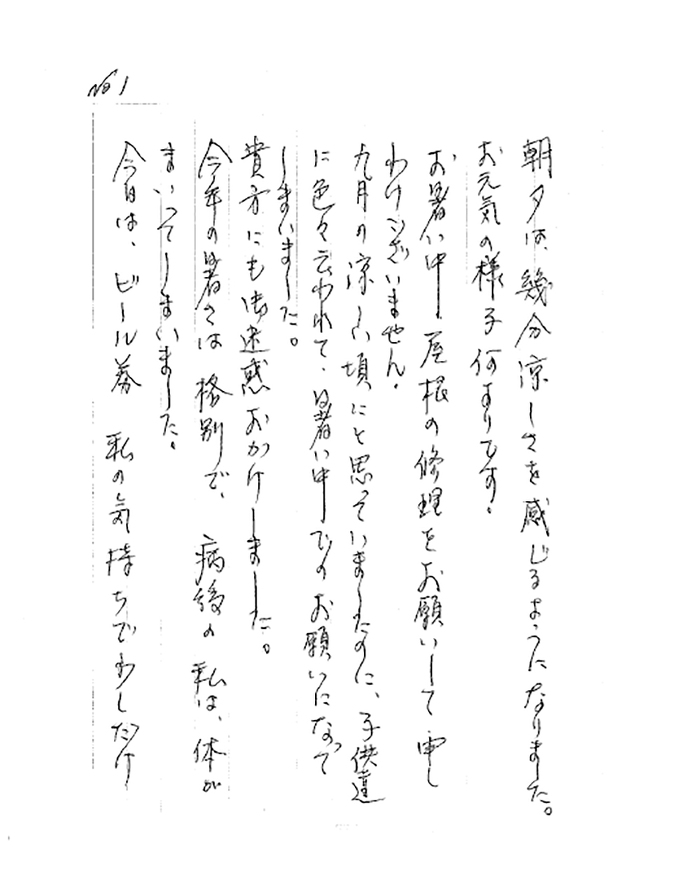 No 1
朝夕は、幾分涼しさを感じるようになりました。
お元気の様子何よりです。
お暑い中、屋根の修理をお願いして申し
わけございません。
九月の涼しい頃にと思っていましたのに、子供達
に色々云われて、お暑い中でのお願いになって
しまいました。
貴方にも御迷惑おかけしました。
今年の暑さは格別で、病後の私は、体が
まいってしまいました。
今日は、ビール券 私の気持ちで少しだけ